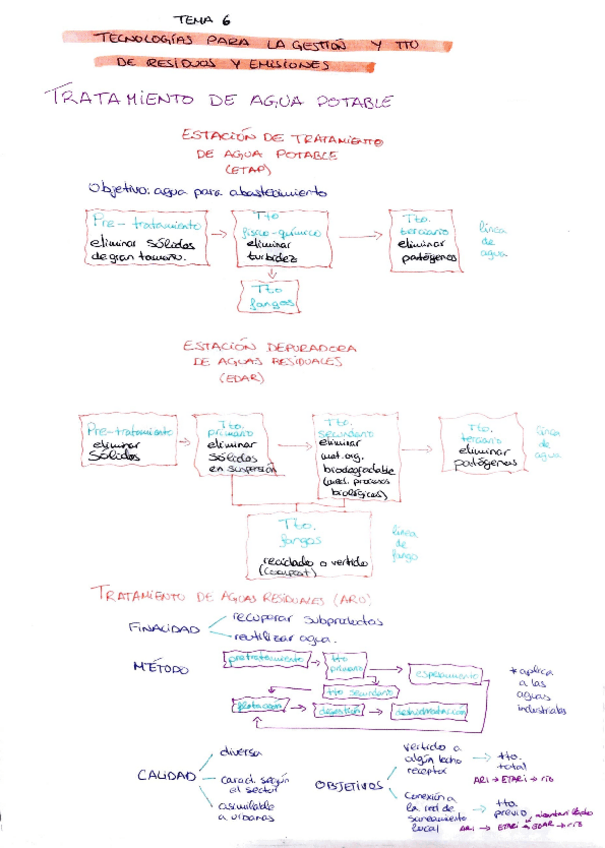 TEMA 6
TECNOLOGÍAS PARA LA GESTIÓN Y TTO
DE RESIDUOS Y EMISIONES
TRATAMIENTO DE AGUA POTABLE
ESTACIÓN DE TRATAMIENTO
DE AGUA POTABLE
(ETAP)
Objetivo: agua para abastecimiento
Pre-tratamiento
eliminar sólidos
de gran tamaño.
Tto
físico-químico
eliminar
turbidez
Tto.
terciario
eliminar
patógenos
línea
de
agua
Tto
fangos
ESTACIÓN DEPURADORA
DE AGUAS RESIDUALES
(EDAR)
Pre-tratamiento
eliminar
sólidos
Tto.
primario
eliminar
sólidos
en suspensión
Tto.
secundario
eliminar
mat. org.
biodegradable
(med. procesos
biológicos)
Tto.
terciario
eliminar
patógenos
línea
de
agua
Tto.
fangos
reciclado o vertido
(compost)
línea
de
fango
TRATAMIENTO DE AGUAS RESIDUALES (ARU)
FINALIDAD
recuperar subproductos
reutilizar agua.
MÉTODO
pretratamiento
tto
primario
espesamiento
tto secundario
flotación
digestión
deshidratación
*aplica
a las
aguas
industriales
CALIDAD
diversa
caract. según
el sector
asimilable
a urbanas
OBJETIVOS
vertido a
algún lecho
receptor
tto.
total
ARI → ETARI → río
Conexión a
la red de
saneamiento
local
tto
previo, alcantarillado
ARI → ETARI → EDAR → río